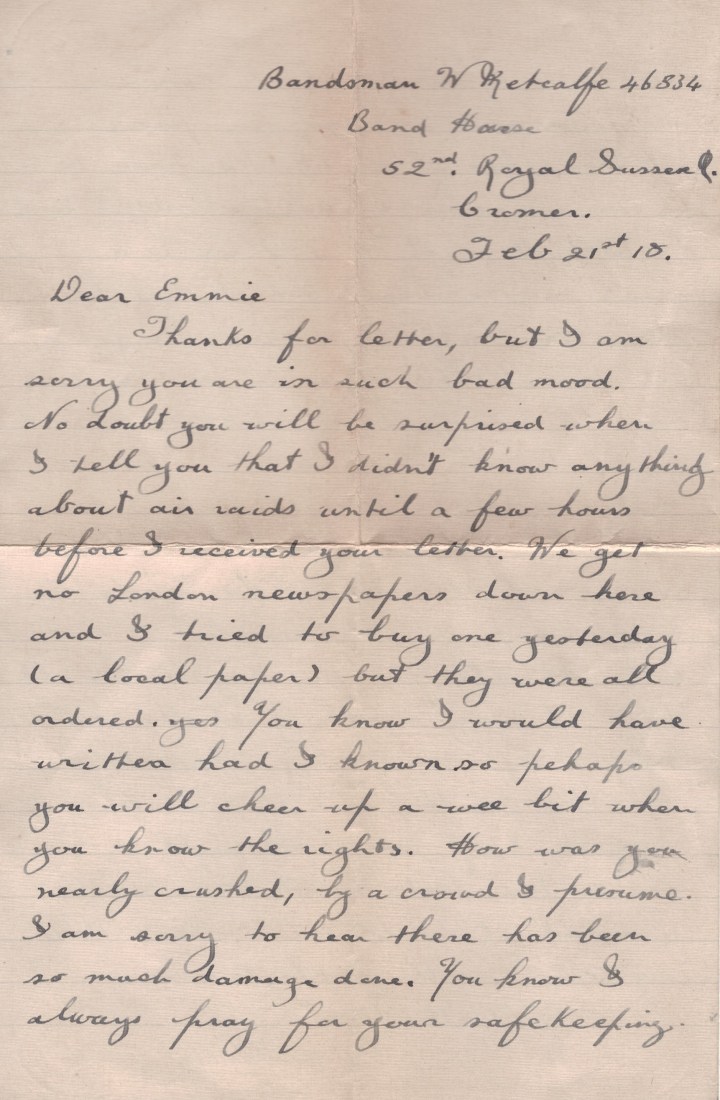 Bandsman W Metcalfe 46834
Band House
52nd. Royal Sussex R.
Cromer.
Feb 21st 18.
Dear Emmie
Thanks for letter, but I am
sorry you are in such bad mood.
No doubt you will be surprised when
I tell you that I didn't know anything
about air raids until a few hours
before I received your letter. We get
no London newspapers down here
and I tried to buy one yesterday
(a local paper) but they were all
ordered. yes You know I would have
written had I known so pehaps
you will cheer up a wee bit when
you know the rights. How was you
nearly crushed, by a crowd I presume.
I am sorry to hear there has been
so much damage done. You know I
always pray for your safe keeping.